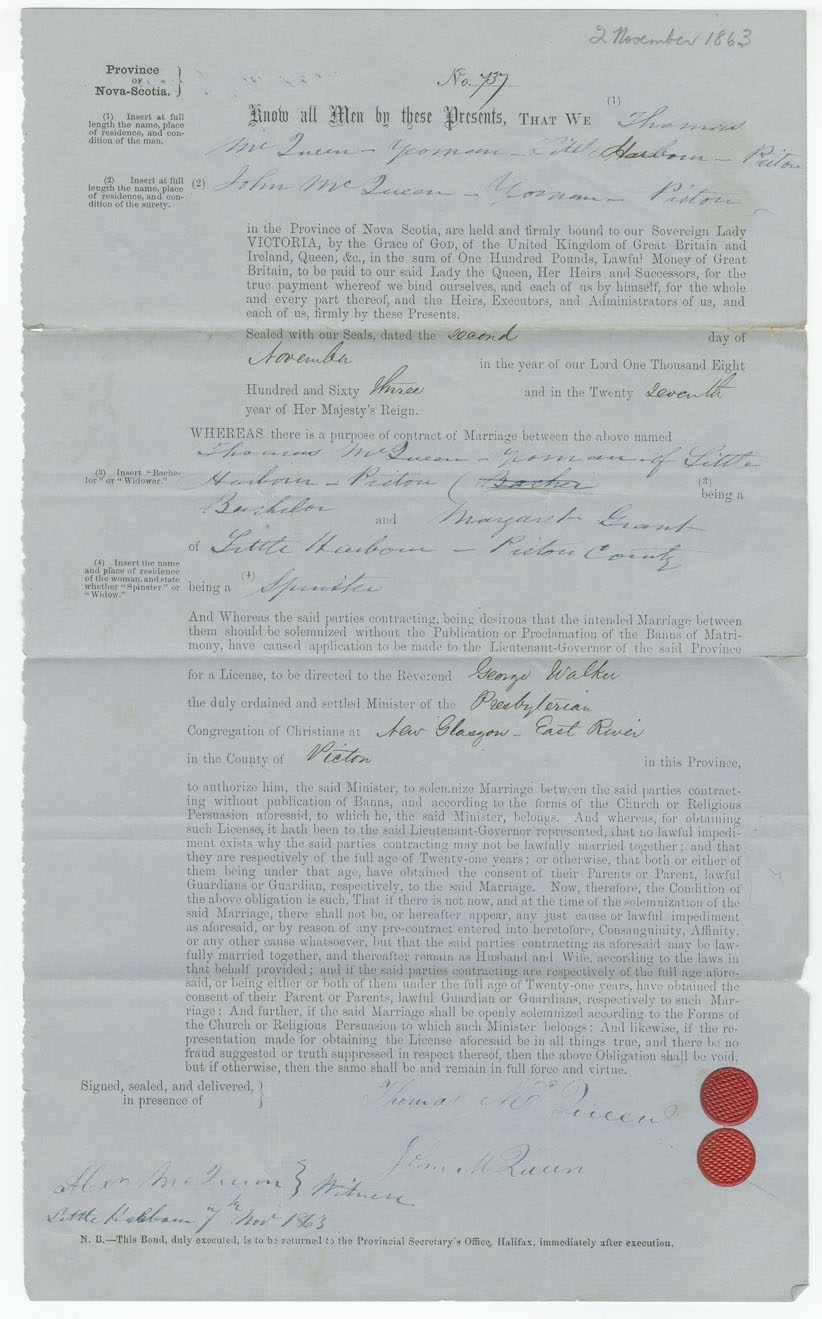 2 November 1863
Province
OF
Nova-Scotia.
No. 737
(1) Insert at full
length the name, place
of residence, and con-
dition of the man.
Know all Men by these Presents, THAT WE (1) Thomas
McQueen - Yeoman - Little Harbour - Pictou
(2) Insert at full
length the name, place
of residence, and con-
dition of the surety.
(2) John McQueen - Yeoman - Pictou
in the Province of Nova Scotia, are held and firmly bound to our Sovereign Lady
VICTORIA, by the Grace of GOD, of the United Kingdom of Great Britain and
Ireland, Queen, &c., in the sum of One Hundred Pounds, Lawful Money of Great
Britain, to be paid to our said Lady the Queen, Her Heirs and Successors, for the
true payment whereof we bind ourselves, and each of us by himself, for the whole
and every part thereof, and the Heirs, Executors, and Administrators of us, and
each of us, firmly by these Presents.
Sealed with our Seals, dated the second day of
November in the year of our Lord One Thousand Eight
Hundred and Sixty three and in the Twenty seventh
year of Her Majesty's Reign.
WHEREAS there is a purpose of contract of Marriage between the above named
Thomas McQueen - Yeoman - of Little
(3) Insert "Bache-
lor" or "Widower."
Harbour - Pictou ( (3)
being a
Bachelor and Margaret Grant
of Little Harbour - Pictou County
(4) Insert the name
and place of residence
of the woman, and state
whether "Spinster" or
"Widow."
being a (4) Spinster
And Whereas the said parties contracting, being desirous that the intended Marriage between
them should be solemnized without the Publication or Proclamation of the Banns of Matri-
mony, have caused application to be made to the Lieutenant-Governor of the said Province
for a License, to be directed to the Reverend George Walker
the duly ordained and settled Minister of the Presbyterian
Congregation of Christians at New Glasgow - East River
in the County of Pictou in this Province,
to authorize him, the said Minister, to solemnize Marriage between the said parties contract-
ing without publication of Banns, and according to the forms of the Church or Religious
Persuasion aforesaid, to which he, the said Minister, belongs. And whereas, for obtaining
such License, it hath been to the said Lieutenant-Governor represented, that no lawful impedi-
ment exists why the said parties contracting may not be lawfully married together; and that
they are respectively of the full age of Twenty-one years; or otherwise, that both or either of
them being under that age, have obtained the consent of their Parents or Parent, lawful
Guardians or Guardian, respectively, to the said Marriage. Now, therefore, the Condition of
the above obligation is such, That if there is not now, and at the time of the solemnization of the
said Marriage, there shall not be, or hereafter appear, any just cause or lawful impediment
as aforesaid, or by reason of any pre-contract entered into heretofore, Consanguinity, Affinity,
or any other cause whatsoever, but that the said parties contracting as aforesaid may be law-
fully married together, and thereafter remain as Husband and Wife, according to the laws in
that behalf provided; and if the said parties contracting are respectively of the full age afore-
said, or being either or both of them under the full age of Twenty-one years, have obtained the
consent of their Parent or Parents, lawful Guardian or Guardians, respectively to such Mar-
riage: And further, if the said Marriage shall be openly solemnized according to the Forms of
the Church or Religious Persuasion to which such Minister belongs: And likewise, if the re-
presentation made for obtaining the License aforesaid be in all things true, and there be no
fraud suggested or truth suppressed in respect thereof, then the above Obligation shall be void,
but if otherwise, then the same shall be and remain in full force and virtue.
Signed, sealed, and delivered,
in presence of
Thomas McQueen
John McQueen
Alexr McQueen } Witness
Little Harbour 7th Nov 1863
N. B.—This Bond, duly executed, is to be returned to the Provincial Secretary's Office, Halifax, immediately after execution.